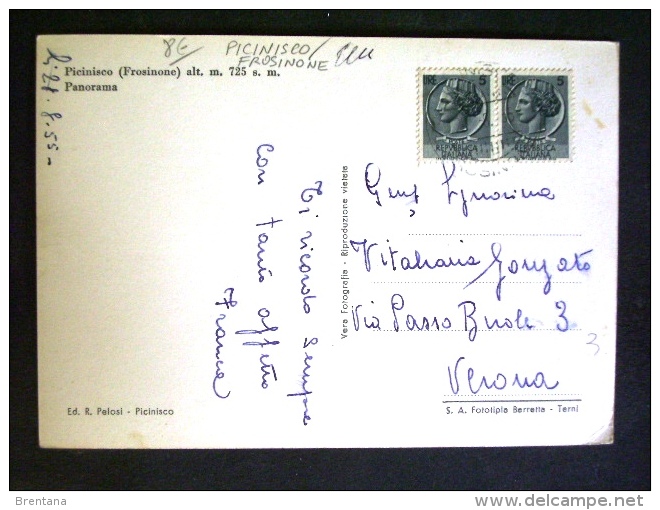 8€ PICINISCO/
FROSINONE
Picinisco (Frosinone) alt. m. 725 s. m.
Panorama
21.8.55-
Ti ricordo sempre
con tanto affetto
Franca
LIRE 5
REPVBBLICA
ITALIANA
LIRE 5
REPVBBLICA
ITALIANA
Vera Fotografia - Riproduzione vietata
Gent. Signorina
Vitaliana Gonzato
Via Passo Buole 3
3
Verona
Ed. R. Pelosi - Picinisco
S. A. Fotolipia Berretta - Terni
Brentana
www.delcampe.net